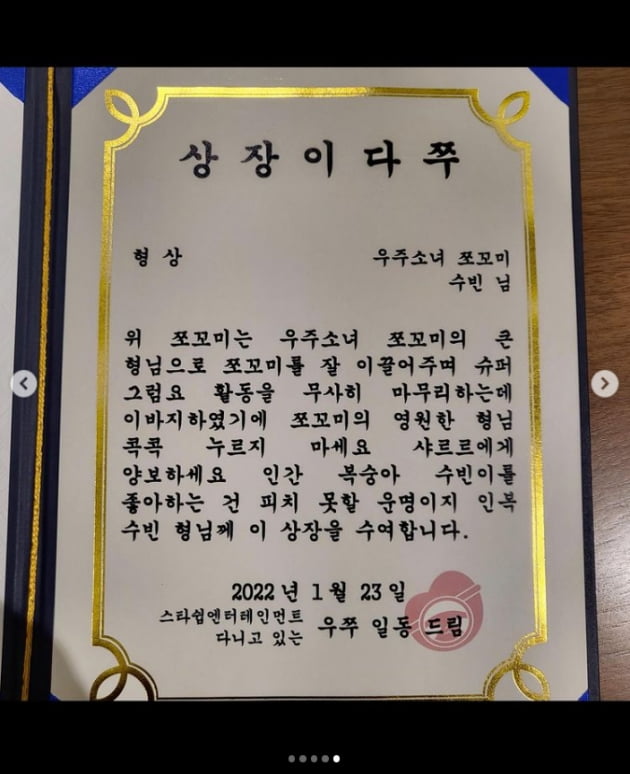 상장이다쭈
형상
우주소녀 쪼꼬미
수빈 님
위 쪼꼬미는 우주소녀 쪼꼬미의 큰
형님으로 쪼꼬미를 잘 이끌어주며 슈퍼
그럼요 활동을 무사히 마무리하는데
이바지하였기에 쪼꼬미의 영원한 형님
콕콕 누르지 마세요 샤르르에게
양보하세요 인간 복숭아 수빈이를
좋아하는 건 피치 못할 운명이지 인복
수빈 형님께 이 상장을 수여합니다.
2022년 1월 23일
스타쉽엔터테인먼트
다니고 있는 우쭈 일동 드림